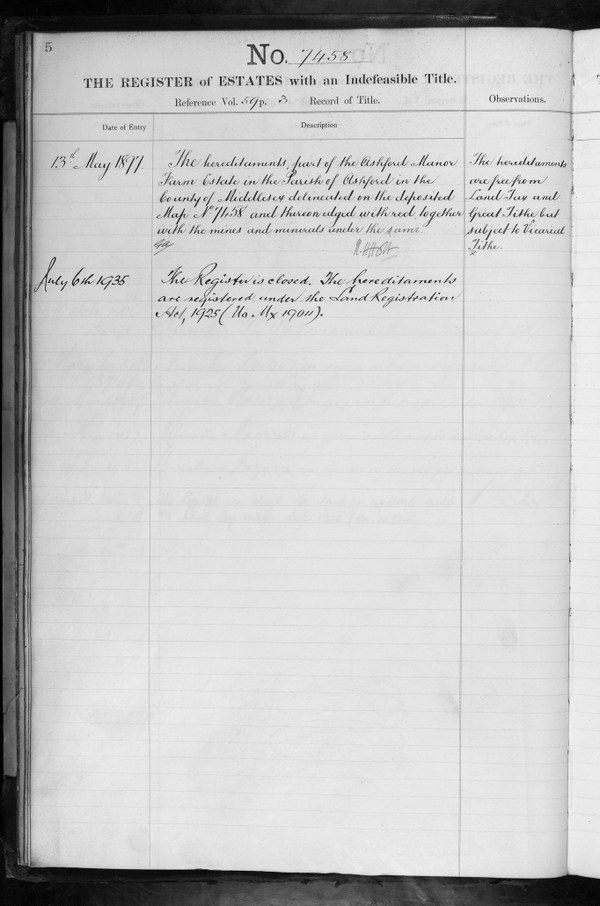 5
No. 7458
THE REGISTER of ESTATES with an Indefeasible Title.
Reference Vol. 59 p. 3. Record of Title.
Observations.
Date of Entry
Description
13th May 1897.
The hereditaments, part of the Ashford Manor
Farm Estate in the Parish of Ashford in the
County of Middlesex delineated on the deposited
Map No 7458 and thereon edged with red together
with the mines and minerals under the same.
The hereditaments
are free from
Land Tax and
Great Tithe but
subject to Vicarial
Tithe.
July 6th 1935
The Register is closed. The hereditaments
are registered under the Land Registration
Act, 1925 (No. Mx 19011).